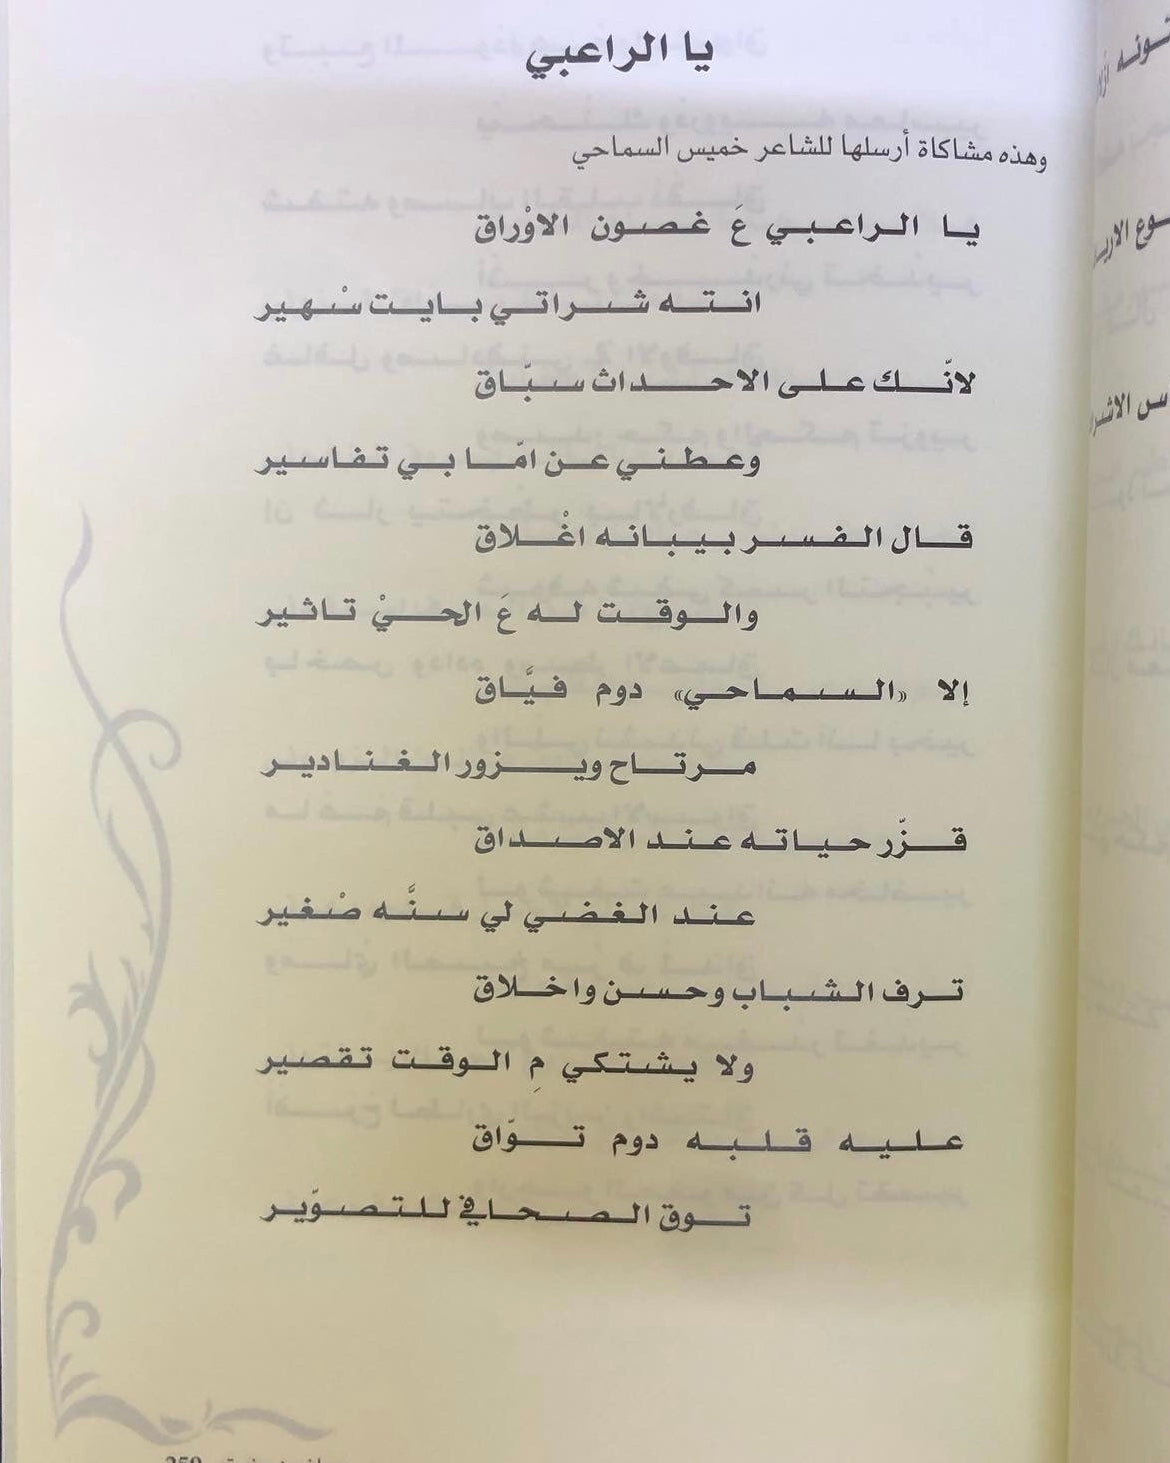 يا الراعبي
وهذه مشاكاة أرسلها للشاعر خميس السماحي
يا الراعبي عَ غصون الاوْراق
انته شراتي بايت سْهير
لانّك على الاحداث سبّاق
وعطني عن امّا بي تفاسير
قال الفسر بيبانه اغْلاق
والوقت له عَ الحيْ تاثير
إلا «السماحي» دوم فيَّاق
مرتاح ويزور الغنادير
قزّر حياته عند الاصداق
عند الغضي لي سنَّه صْغير
ترف الشباب وحسن واخلاق
ولا يشتكي مِ الوقت تقصير
عليه قلبه دوم توّاق
توق الصحافي للتصوّير